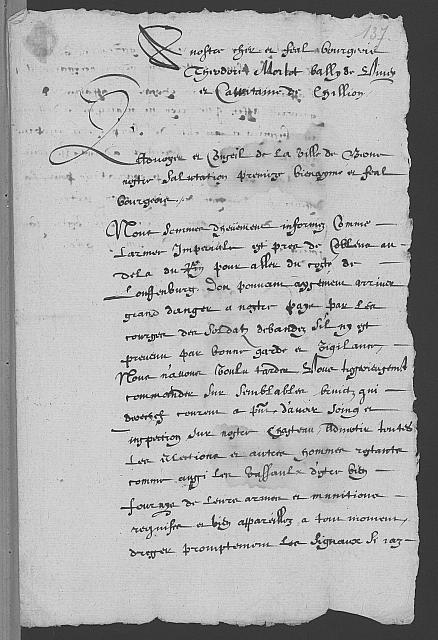 137.
A nostre cher et feal bourgeois
Theodore Morlot bally de Vivey
et Cappitaine de Chillion
L'Advoyer et Conseil de la Ville de Berne
nostre salutation premise bienayme et feal
bourgeois.
Nous sommes deuement informez Comme
Larmee Imperiale est pres de Coblens au
dela du Rhin pour aller du costé de
Louffenburg, Don pouvant aysement arriver
grand danger a nostre pays par les
courses des soldatz debandez, sil ny est
preveu par bonne garde et vigilance.
Nous n'avons voulu tarder Vous
commander sur semblables bruicts qui
courent a p̃nt d'avoir soing et
inspection sur nostre Chasteau, Advertir toutes
les Elections et autres hommes restants
comme aussi les vassaulx d'estre bien
fournys de leurs armes et munitions
requises et bien appareillez a tout moment,
dresser promptement les signaux si ja